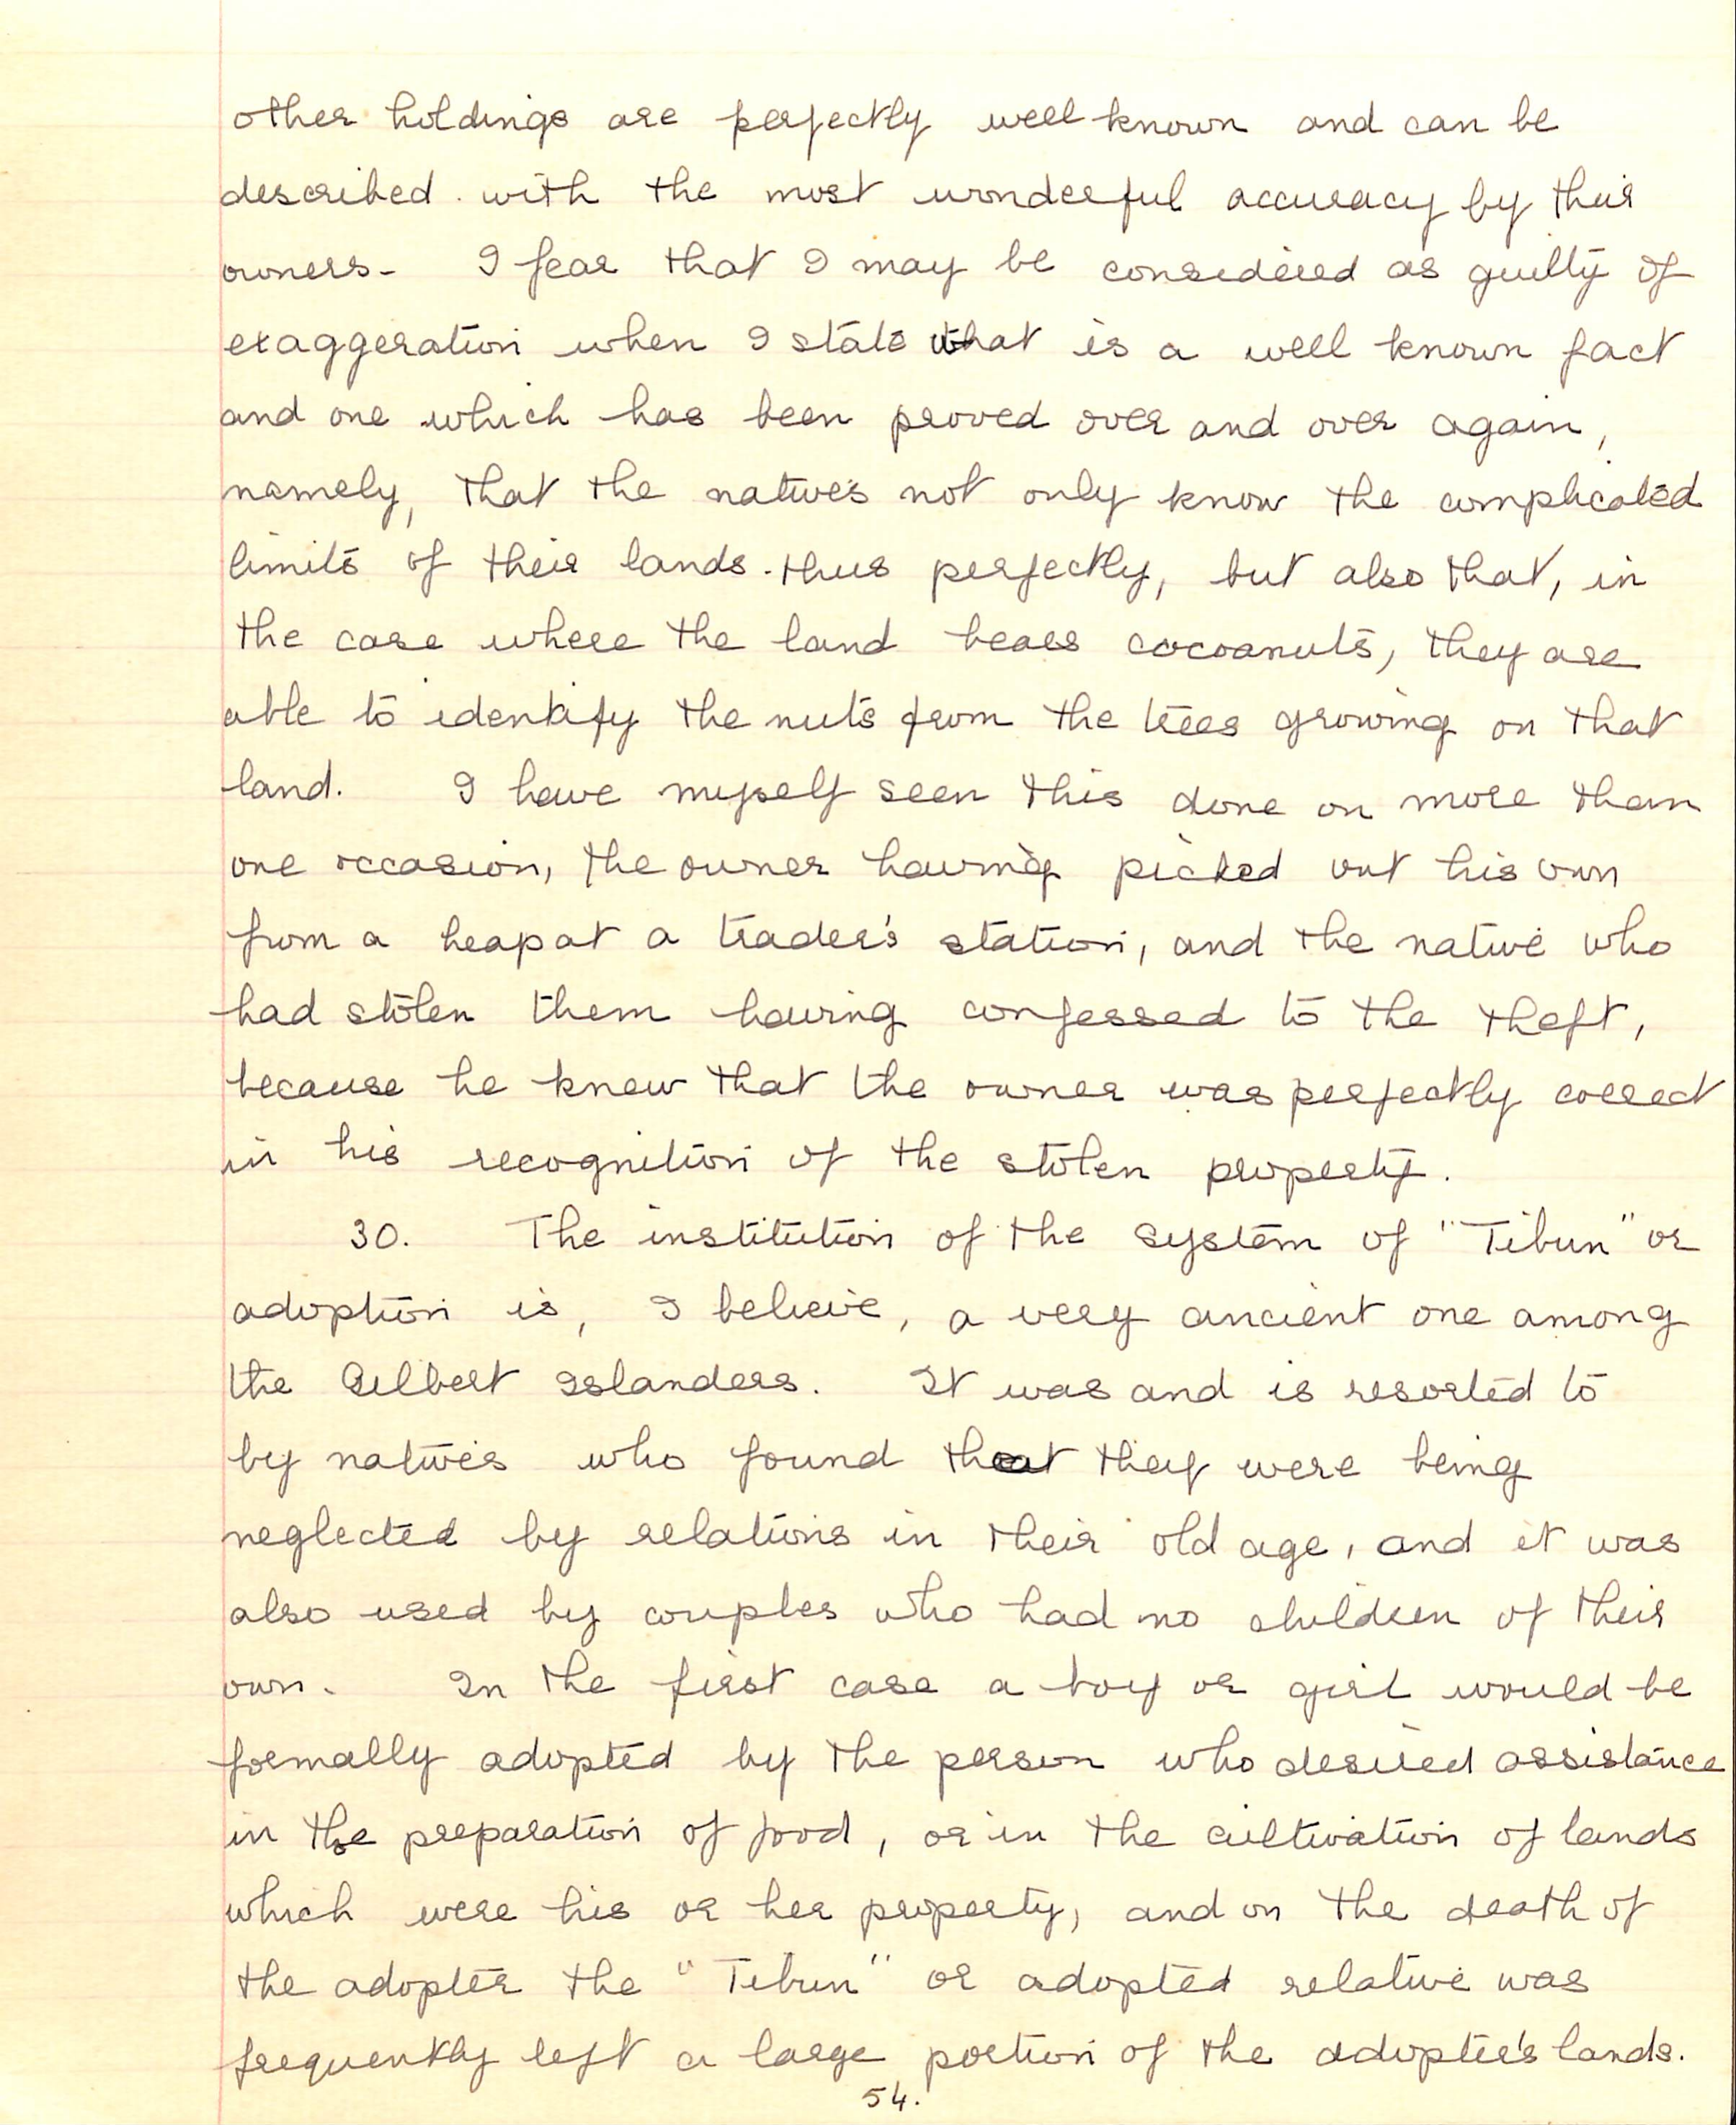 other holdings are perfectly well known and can be
described with the most wonderful accuracy by their
owners. I fear that I may be considered as guilty of
exaggeration when I state what is a well known fact
and one which has been proved over and over again,
namely, that the natives not only know the complicated
limits of their lands thus perfectly, but also that, in
the case where the land bears cocoanuts, they are
able to identify the nuts from the trees growing on that
land. I have myself seen this done on more than
one occasion, the owner having picked out his own
from a heap at a trader's station, and the native who
had stolen them having confessed to the theft,
because he knew that the owner was perfectly correct
in his recognition of the stolen property.
30. The institution of the system of "Tibun" or
adoption is, I believe, a very ancient one among
the Gilbert Islanders. It was and is resorted to
by natives who found that they were being
neglected by relations in their old age, and it was
also used by couples who had no children of their
own. In the first case a boy or girl would be
formally adopted by the person who desired assistance
in the preparation of food, or in the cultivation of lands
which were his or her property, and on the death of
the adopter the "Tibun" or adopted relative was
frequently left a large portion of the adopter's lands.
54.